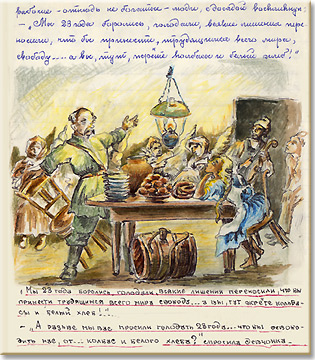 рабочие - отнюдь не богатые - люди, с досадой воскликнул:
- „Мы 23 года боролись, голодали, всякие лишения пере
носили, что бы принести, трудящимся всего мира,
свободу.... а вы, тут, жрёте колбасы и белый хлеб!"
„Мы 23 года боролись, голодали, всякие лишения переносили, что бы
принести трудящимся всего мира свободу... а вы, тут жрёте колба-
сы и белый хлеб!...
- „А разве мы вас просили голодать 23 года... что бы освобо-
дить нас, от... колбас и белого хлеба?" спросила девчонка.